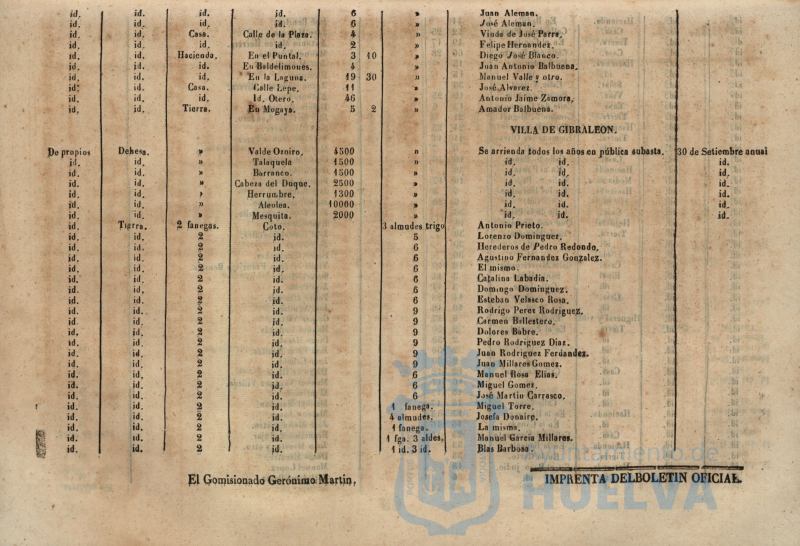 id. id. id. id. 6 » Juan Aleman.
id. id. id. id. 6 » José Aleman.
id. id. Casa. Calle de la Plaza. 4 » Viuda de José Parra.
id. id. id. id. 2 » Felipe Hernandez.
id. id. Hacienda. En el Puntal. 3 10 » Diego José Blanco.
id. id. id. En Baldelimones. 4 » Juan Antonio Balbuena.
id. id. id. En la Laguna. 19 30 » Manuel Valle y otro.
id. id. Casa. Calle Lepe. 11 » José Alvarez.
id. id. id. Id. Otero. 46 » Antonio Jaime Zamora.
id. id. Tierra. En Mogaya. 5 2 » Amador Balbuena.
VILLA DE GIBRALEON.
De propios Dehesa. » Valde Ozoiro. 4500 » Se arrienda todos los años en pública subasta. 30 de Setiembre anual
id. id. » Talaquela 1500 » id. id. id.
id. id. » Barranco. 1500 » id. id. id.
id. id. » Cabeza del Duque. 2500 » id. id. id.
id. id. » Herrumbre. 1300 » id. id. id.
id. id. » Alcolea. 10000 » id. id. id.
id. id. » Mesquita. 2000 » id. id. id.
id. Tierra. 2 fanegas. Coto. 3 almudes trigo Antonio Prieto.
id. id. 2 id. 5 Lorenzo Dominguez.
id. id. 2 id. 6 Herederos de Pedro Redondo.
id. id. 2 id. 6 Agustino Fernandez Gonzalez.
id. id. 2 id. 6 El mismo.
id. id. 2 id. 6 Catalina Labadia.
id. id. 2 id. 6 Domingo Dominguez.
id. id. 2 id. 6 Esteban Velasco Rosa.
id. id. 2 id. 9 Rodrigo Perez Rodriguez.
id. id. 2 id. 9 Carmen Ballestero.
id. id. 2 id. 9 Dolores Bobre.
id. id. 2 id. 9 Pedro Rodriguez Diaz.
id. id. 2 id. 9 Juan Rodriguez Ferdandez.
id. id. 2 id. 9 Juan Millares Gomez.
id. id. 2 id. 6 Manuel Rosa Elias.
id. id. 2 id. 6 Miguel Gomez.
id. id. 2 id. 6 José Martin Carrasco.
id. id. 2 id. 1 fanega. Miguel Torre.
id. id. 2 id. 4 almudes. Josefa Donairo.
id. id. 2 id. 1 fanega. La misma.
id. id. 2 id. 1 fga. 3 aldes. Manuel Garcia Millares.
id. id. 2 id. 1 id. 3 id. Blas Barbosa.
Ayuntamiento de
HUELVA
El Gomisionado Gerónimo Martin.
IMPRENTA DELBOLETIN OFICIAL.